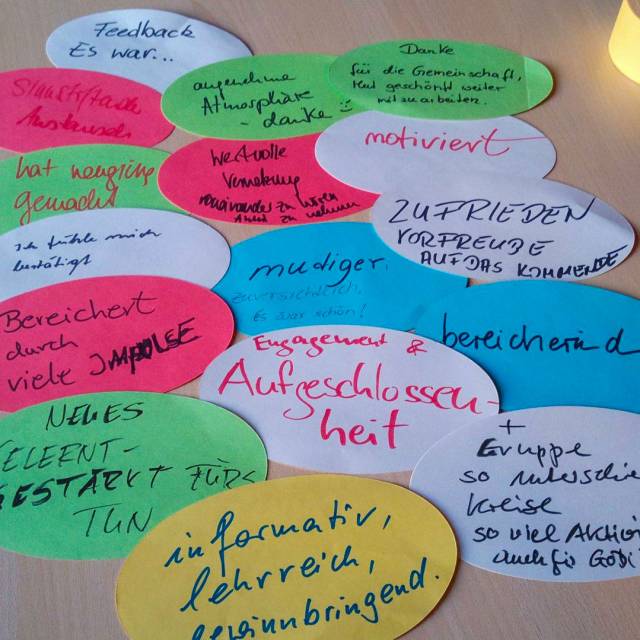 Feedback
Es war...
Danke
für die Gemeinschaft,
Mut geschöpft weiter
mitzuarbeiten.
angenehme
Atmosphäre
- danke
Austausch
motiviert
Wertvolle
Vernetzung
voneinander zu wissen
Anteil zu nehmen
hat neugierig
gemacht
ZUFRIEDEN
VORFREUDE
AUF DAS KOMMENDE
Ich fühle mich
bestätigt
mudiger.
zuversichtlich.
Es war schön!
Bereichert
durch
viele IMPULSE
bereichernd
Engagement &
Aufgeschlossen-
heit
NEUES
GESTÄRKT FÜRS
TUN
+
Gruppe
so
Kreise
so viel Aktion
auch für
informativ,
lehrreich,
gewinnbringend.